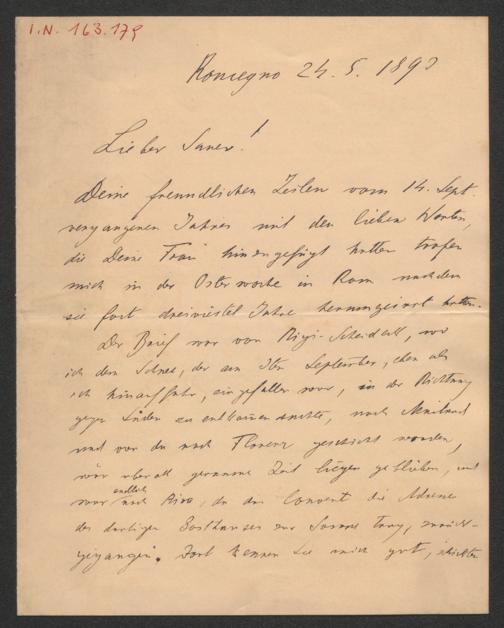 I.N. 163.179
Roncegno 24. 5. 1890
Lieber Sauer!
Deine freundlichen Zeilen vom 14. Sept.
vergangenen Jahres mit den lieben Worten,
die Deine Frau hinzugefügt hatte trafen
mich in der Osterwoche in Rom nachdem
sie fast dreiviertel Jahre herumgeirrt hatten.
Der Brief war von Rigi-Scheideck, wo
ich dem Schnee, der am 3ten September, eben als
ich hinauffuhr, eingefallen war, in der Richtung
gegen Süden zu entkommen suchte, nach Mailand
und von da nach Florenz geschickt worden,
war überall geraume Zeit liegen geblieben, und
war endlich nach Riva, da der Convent die Adresse
des dortigen Gasthauses zur Sonne trug, zurück-
gegangen. Dort kennen sie mich gut, schickten